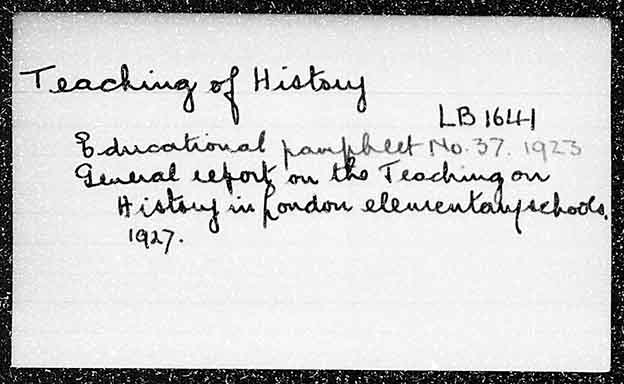 Teaching of History
LB 1641
Educational pamphlet No. 37. 1923
General report on the Teaching on
History in London elementary schools.
1927.